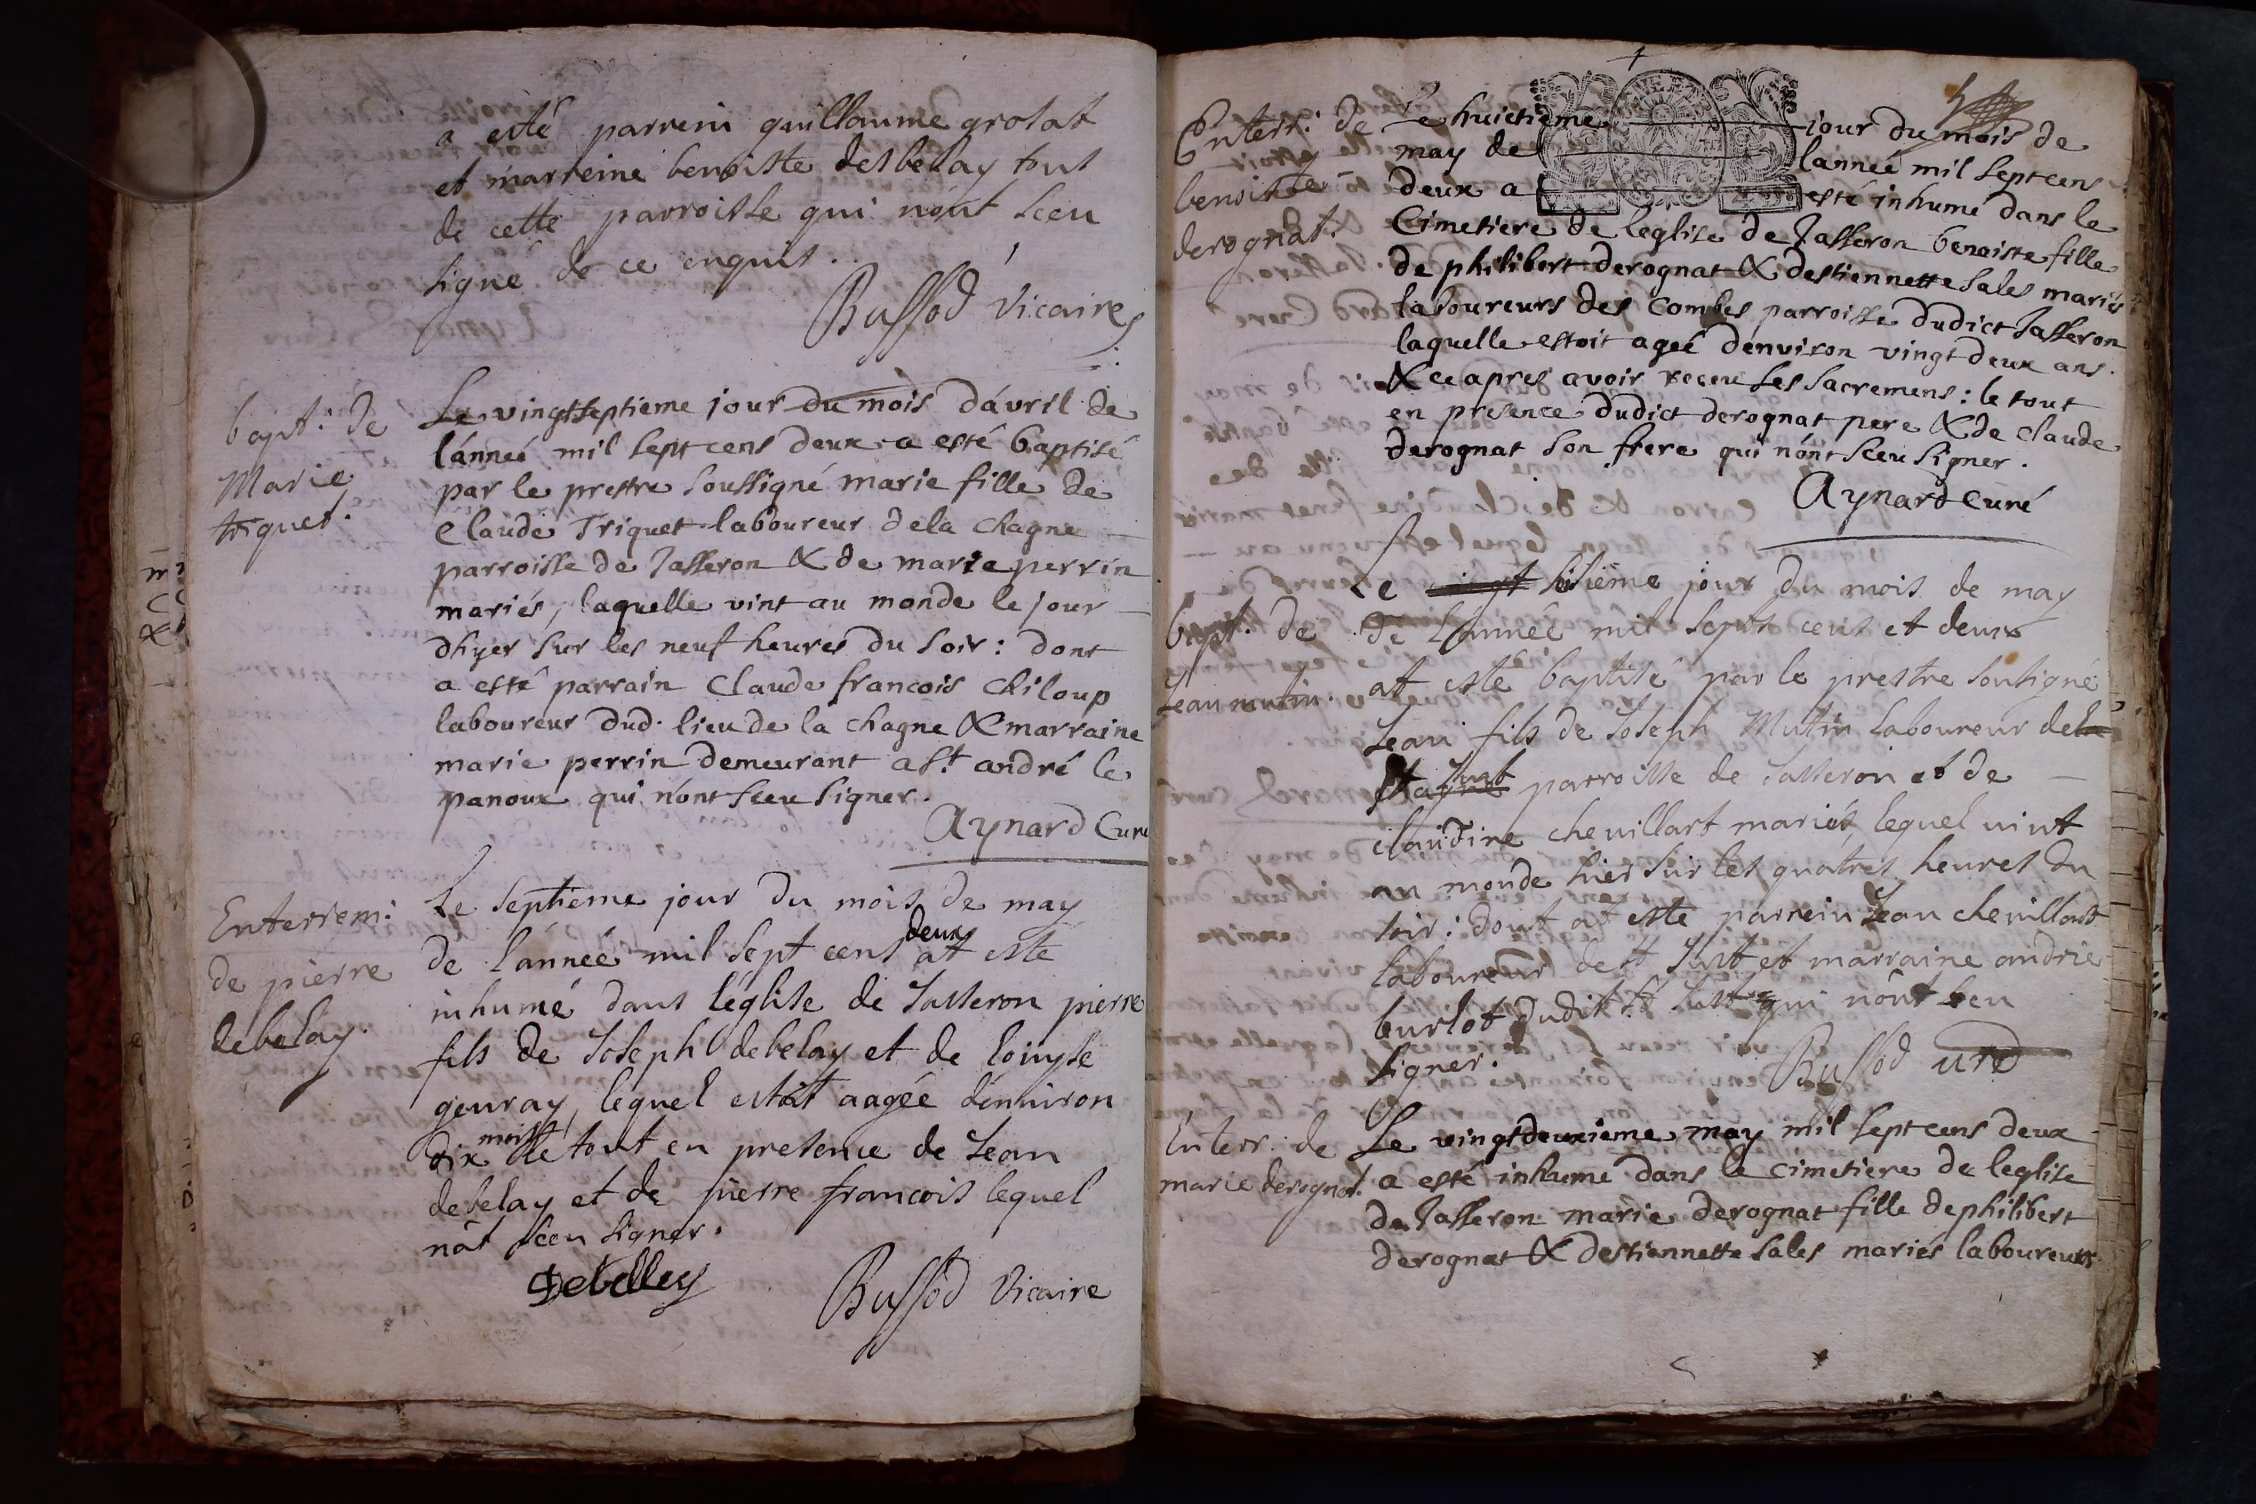 a esté parrein guillaume grolat
et marreine benoiste desbelay tous
de cette parroisse qui n'ont sceu
signé de ce enquis.
Bussod Vicaire
bapt: de
Marie
triquet.
Le vingtseptieme jour du mois d'avril de
l'année mil sept cens deux a esté baptisé
par le prestre soussigné marie fille de
Claude Triquet laboureur dela chagne
parroisse de Jasseron & de marie perrin
mariés, laquelle vint au monde le jour
d'hyer sur les neuf heures du soir: dont
a esté parrain Claude francois chiloup
laboureur dud. lieu de la chagne & marraine
marie perrin demeurant a St. andré le
panoux qui n'ont sceu signer.
Aynard Curé
Enterrem:
de pierre
debelay.
Le septieme jour du mois de may
de l'année mil sept cens deux at esté
inhumé dans l'église de Jasseron pierre
fils de Joseph debelay et de louyse
gouray, lequel estoit aagée d'environ
dix mois le tout en presence de Jean
debelay et de pierre francois lequel
n'at sceu signer.
Debelley
Bussod Vicaire
Enterr: de
benoiste
derognat.
Le huictieme jour du mois de
may de lanneé mil sept cens
deux a esté inhumé dans le
Cimetiere de leglise de Jasseron benoiste fille
de philibert derognat & destiennette sales mariés
laboureurs des combes parroisse dudict Jasseron
laquelle estoit ageé denviron vingt deux ans.
& ce apres avoir receu les sacremens: le tout
en presence dudict derognat pere & de claude
derognat son frere qui n'ont sceu signer.
Aynard Curé
bapt. de
Jean mutin.
Le sisieme jour du mois de may
de l'année mil sept cens et deux
at esté baptisé par le prestre sousigné
Jean fils de Joseph Mutin laboureur de
St Just parroisse de Jasseron et de
claudine chevillart mariés, lequel vint
au monde hier sur les quatres heures du
soir: dont at esté parrein Jean chevillart
laboureur de St Just et marraine andrie
burlot dudit St Just qui n'ont seu
signer.
Bussod
Enterr: de
marie derognat.
Le vingtdeuxieme may mil sept cens deux
a esté inhumé dans le cimetiere de leglise
de Jasseron marie derognat fille de philibert
derognat & destiennette sales mariés laboureurs